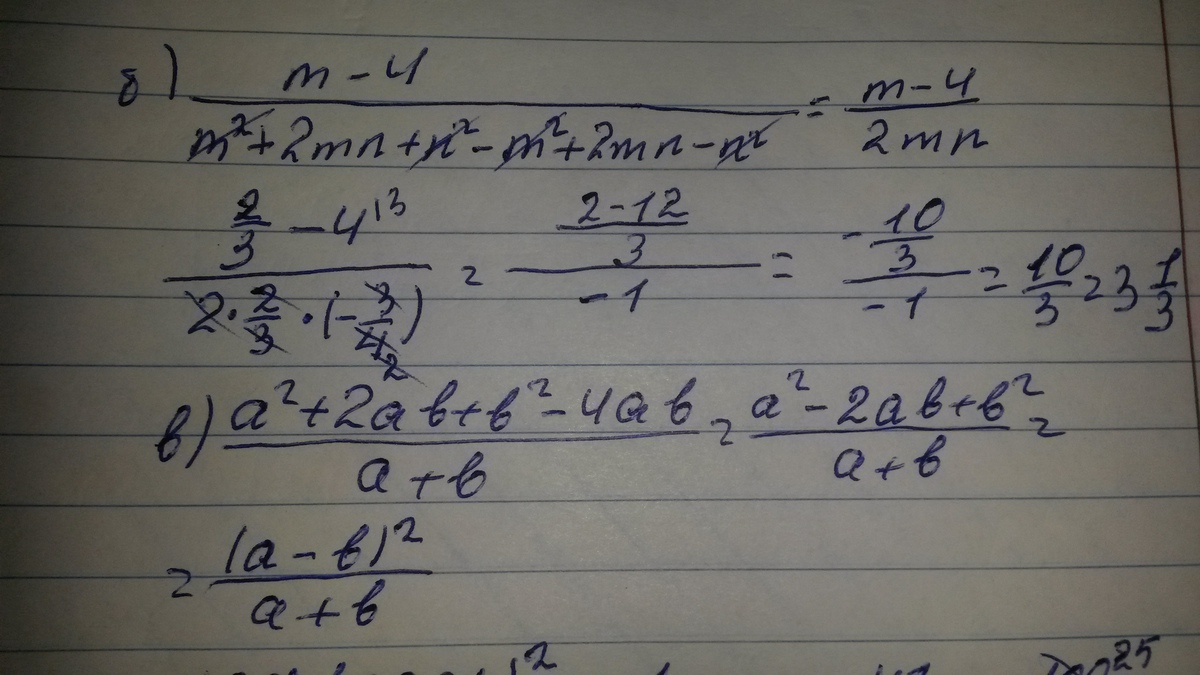 б) (m-4)/(m²+2mn+n²-m²+2mn-n²) = (m-4)/(2mn)
(2/3 - 4^(\3))/(2·2/3·(-3/4 2)) = ((2-12)/3)/(-1) = (-10/3)/(-1) = 10/3 = 3 1/3
в) (a²+2ab+b²-4ab)/(a+b) = (a²-2ab+b²)/(a+b) =
= (a-b)²/(a+b)